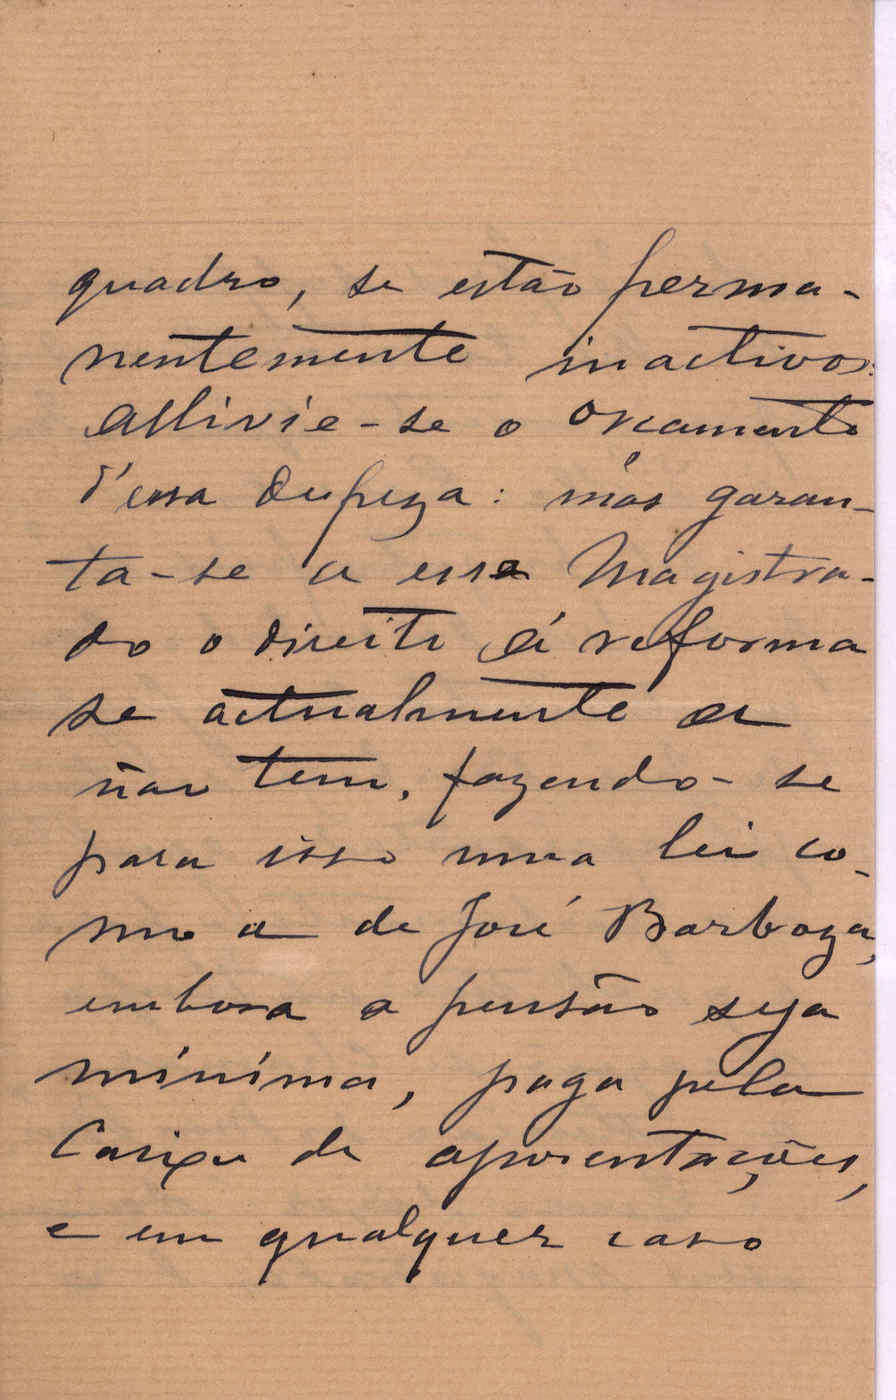 quadro, se estão perma-
nentemente inactivos:
allivie-se o orcamento
d'essa despeza: mas garan-
ta-se a esse Magistra-
do o direito á reforma
se actualmente a
não tem, fazendo-se
para isso uma lei co-
mo a de José Barboza,
embora a pensão seja
minima, paga pela
Caixa de aposentações,
e em qualquer caso